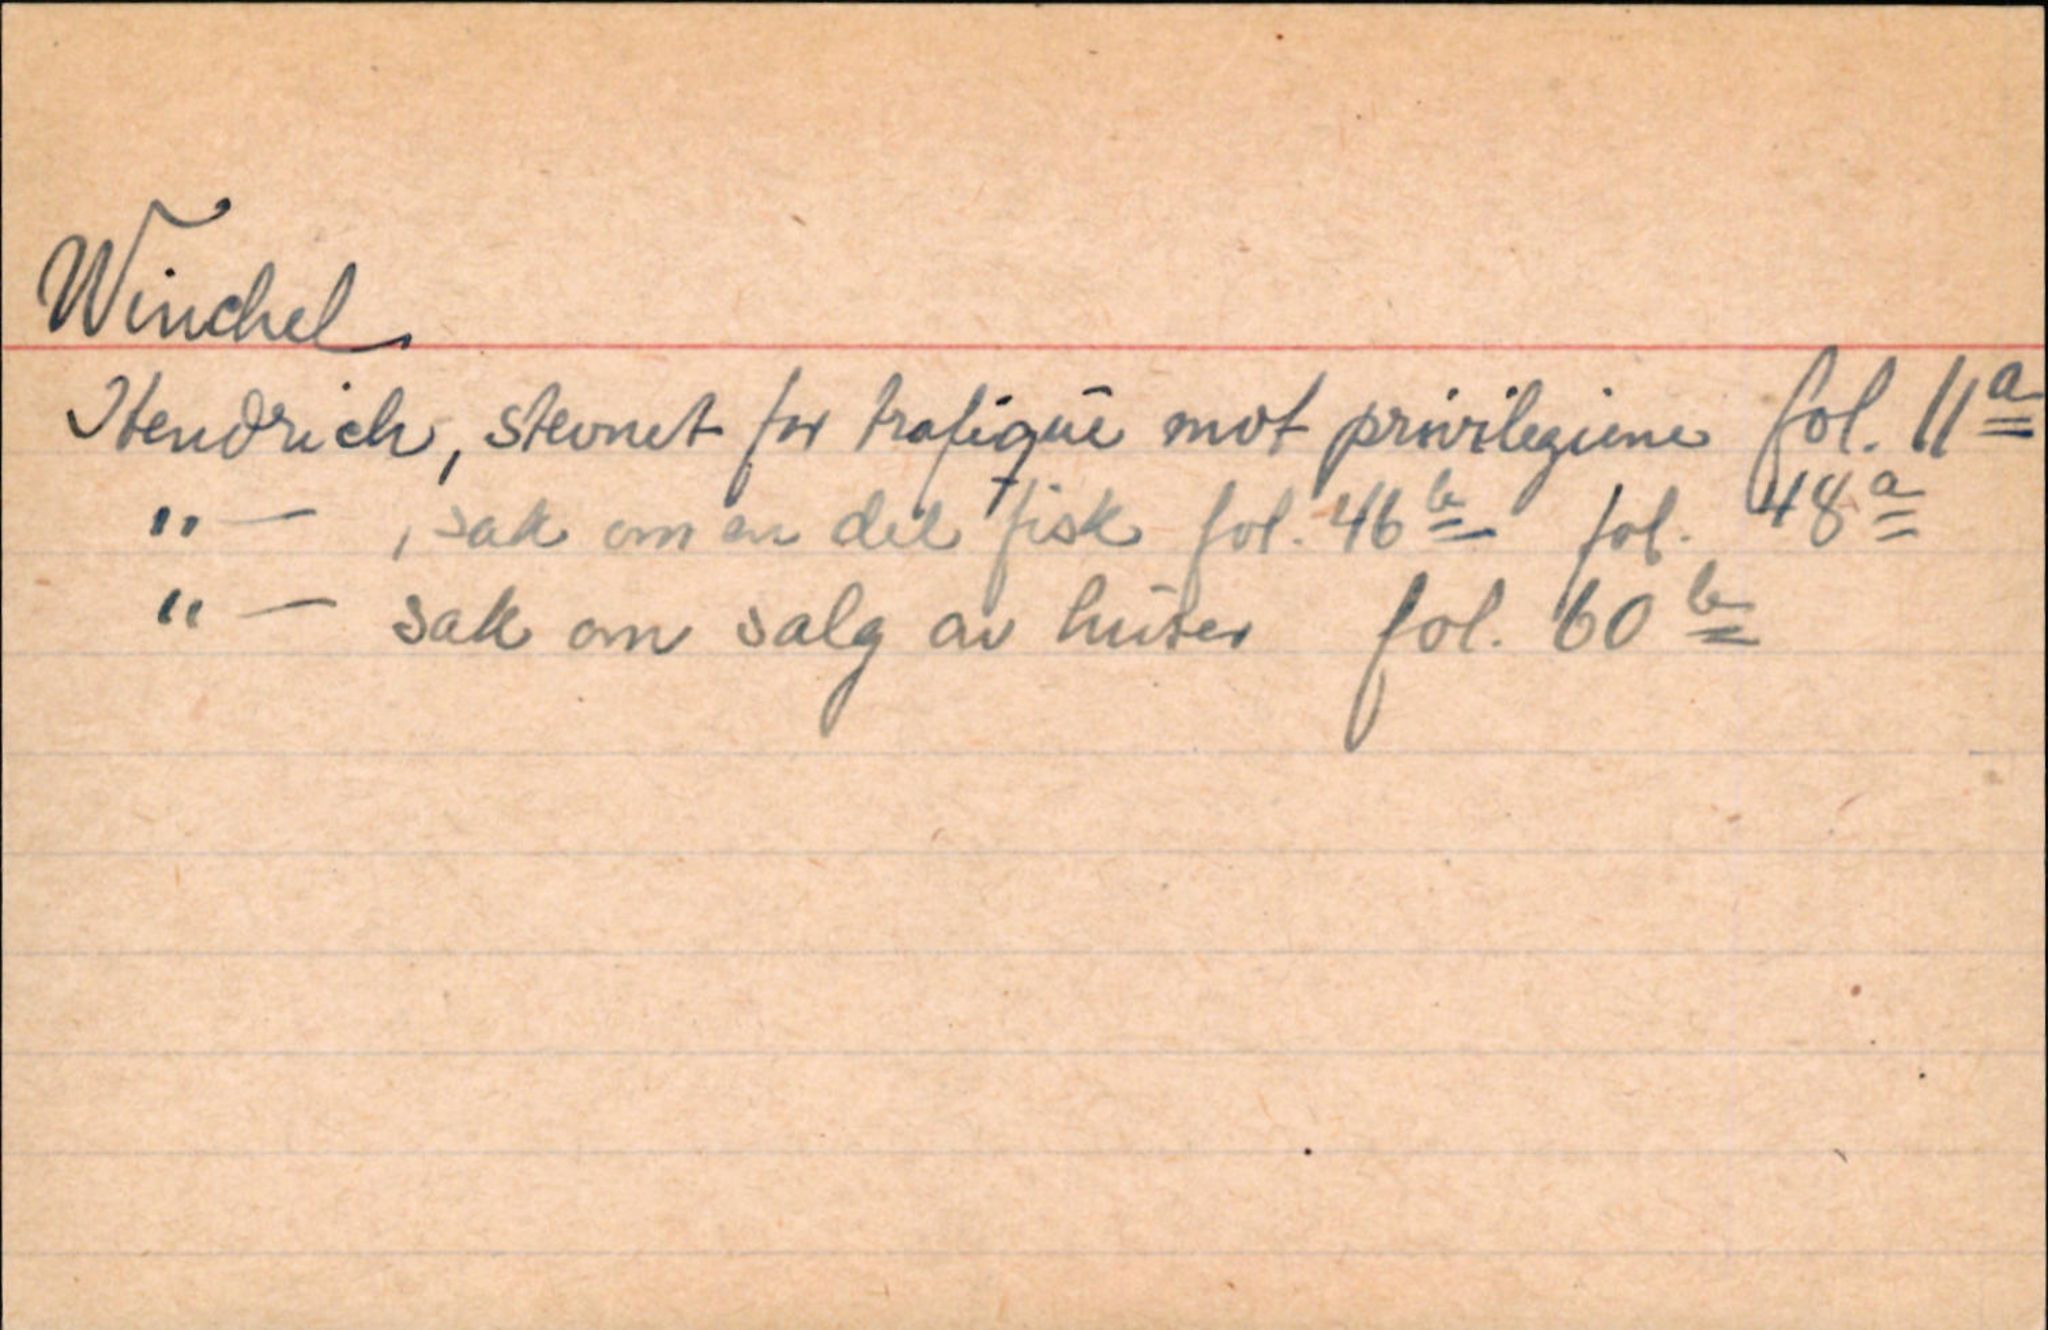 Winchel
Hendrich, stevnet for trafique mot privilegiene fol. 11a
"— , sak om en del fisk fol. 46b fol. 48a
"— sak om salg av huser fol. 60b